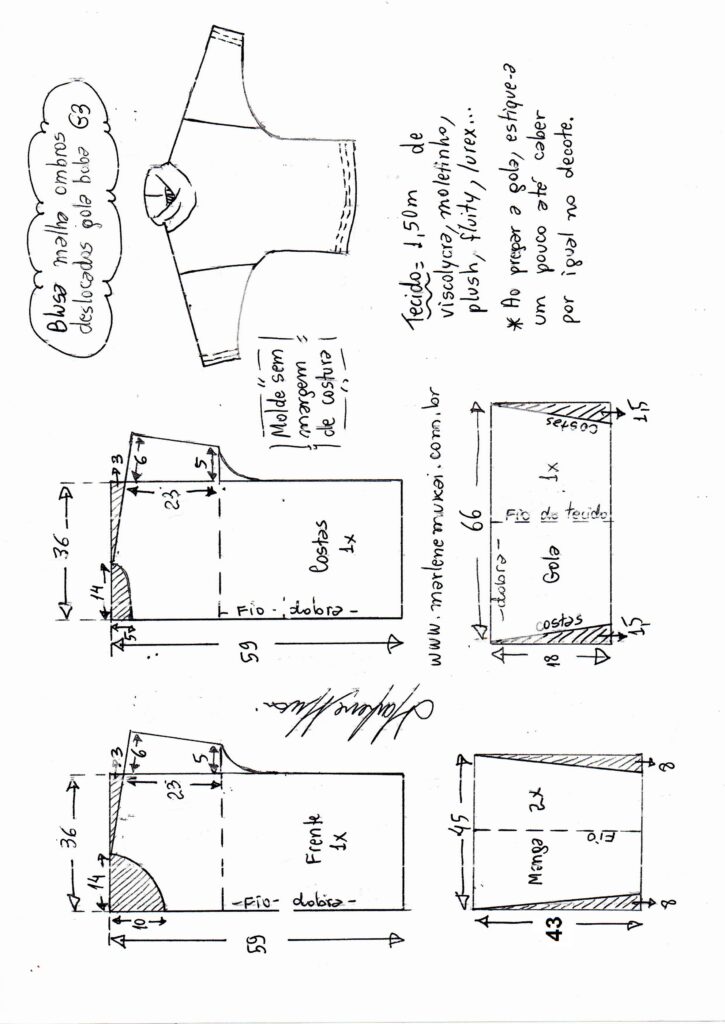 36
14
3
6
23
5
10
59
Frente
1x
-Fio- dobra-
36
14
3
6
23
5
5
59
Costas
1x
-Fio- dobra-
Blusa malha ombros
deslocados gola boba G3
Molde sem
margem
de costura
www.marlenemukai.com.br
45
Manga 2x
Fio
43
8
8
66
-dobra-
Fio do tecido
Gola 1x
costas
costas
18
1,5
1,5
Tecido = 1,50m de
viscolycra, moletinho,
plush, fluity, lurex...
* Ao pregar a gola, estique-a
um pouco até caber
por igual no decote.